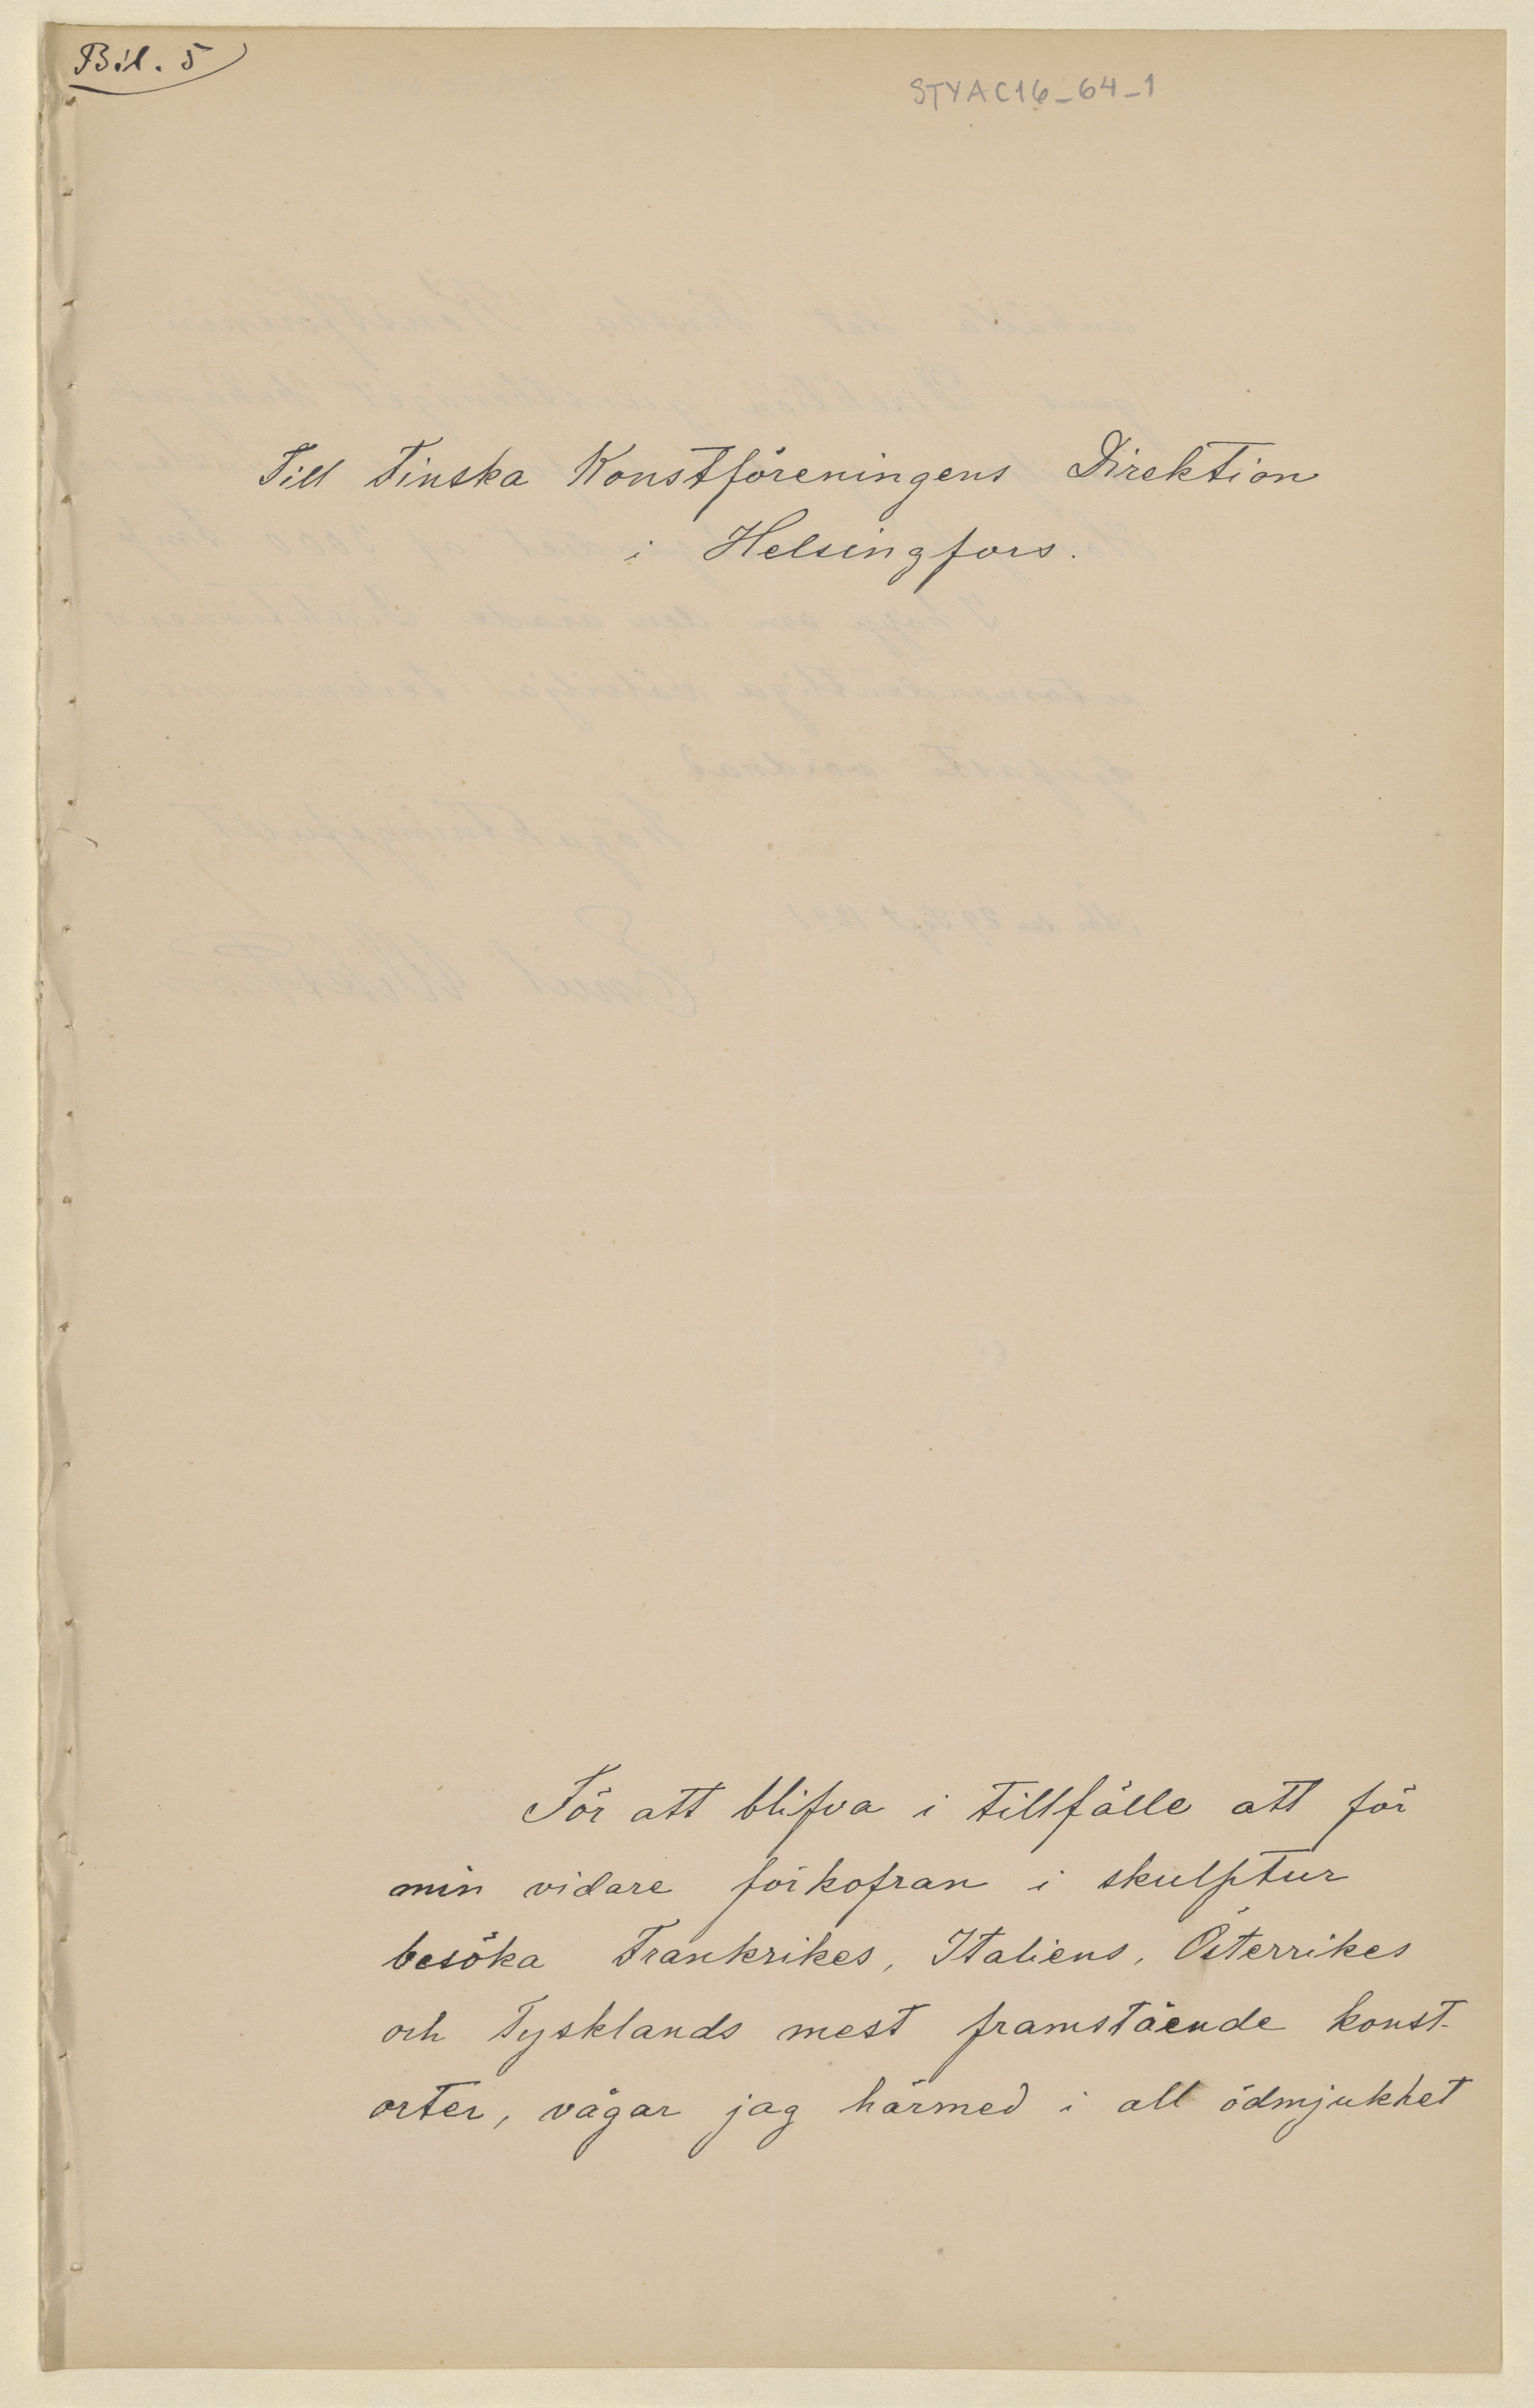 Bil. 5
STYAC16_64_1
Till Finska Konstföreningens Direktion
i Helsingfors.
För att blifva i tillfälle att för
min vidare förkofran i skulptur
besöka Frankrikes, Italiens, Österrikes
och Tysklands mest framstående konst-
orter, vågar jag härmed i all ödmjukhet